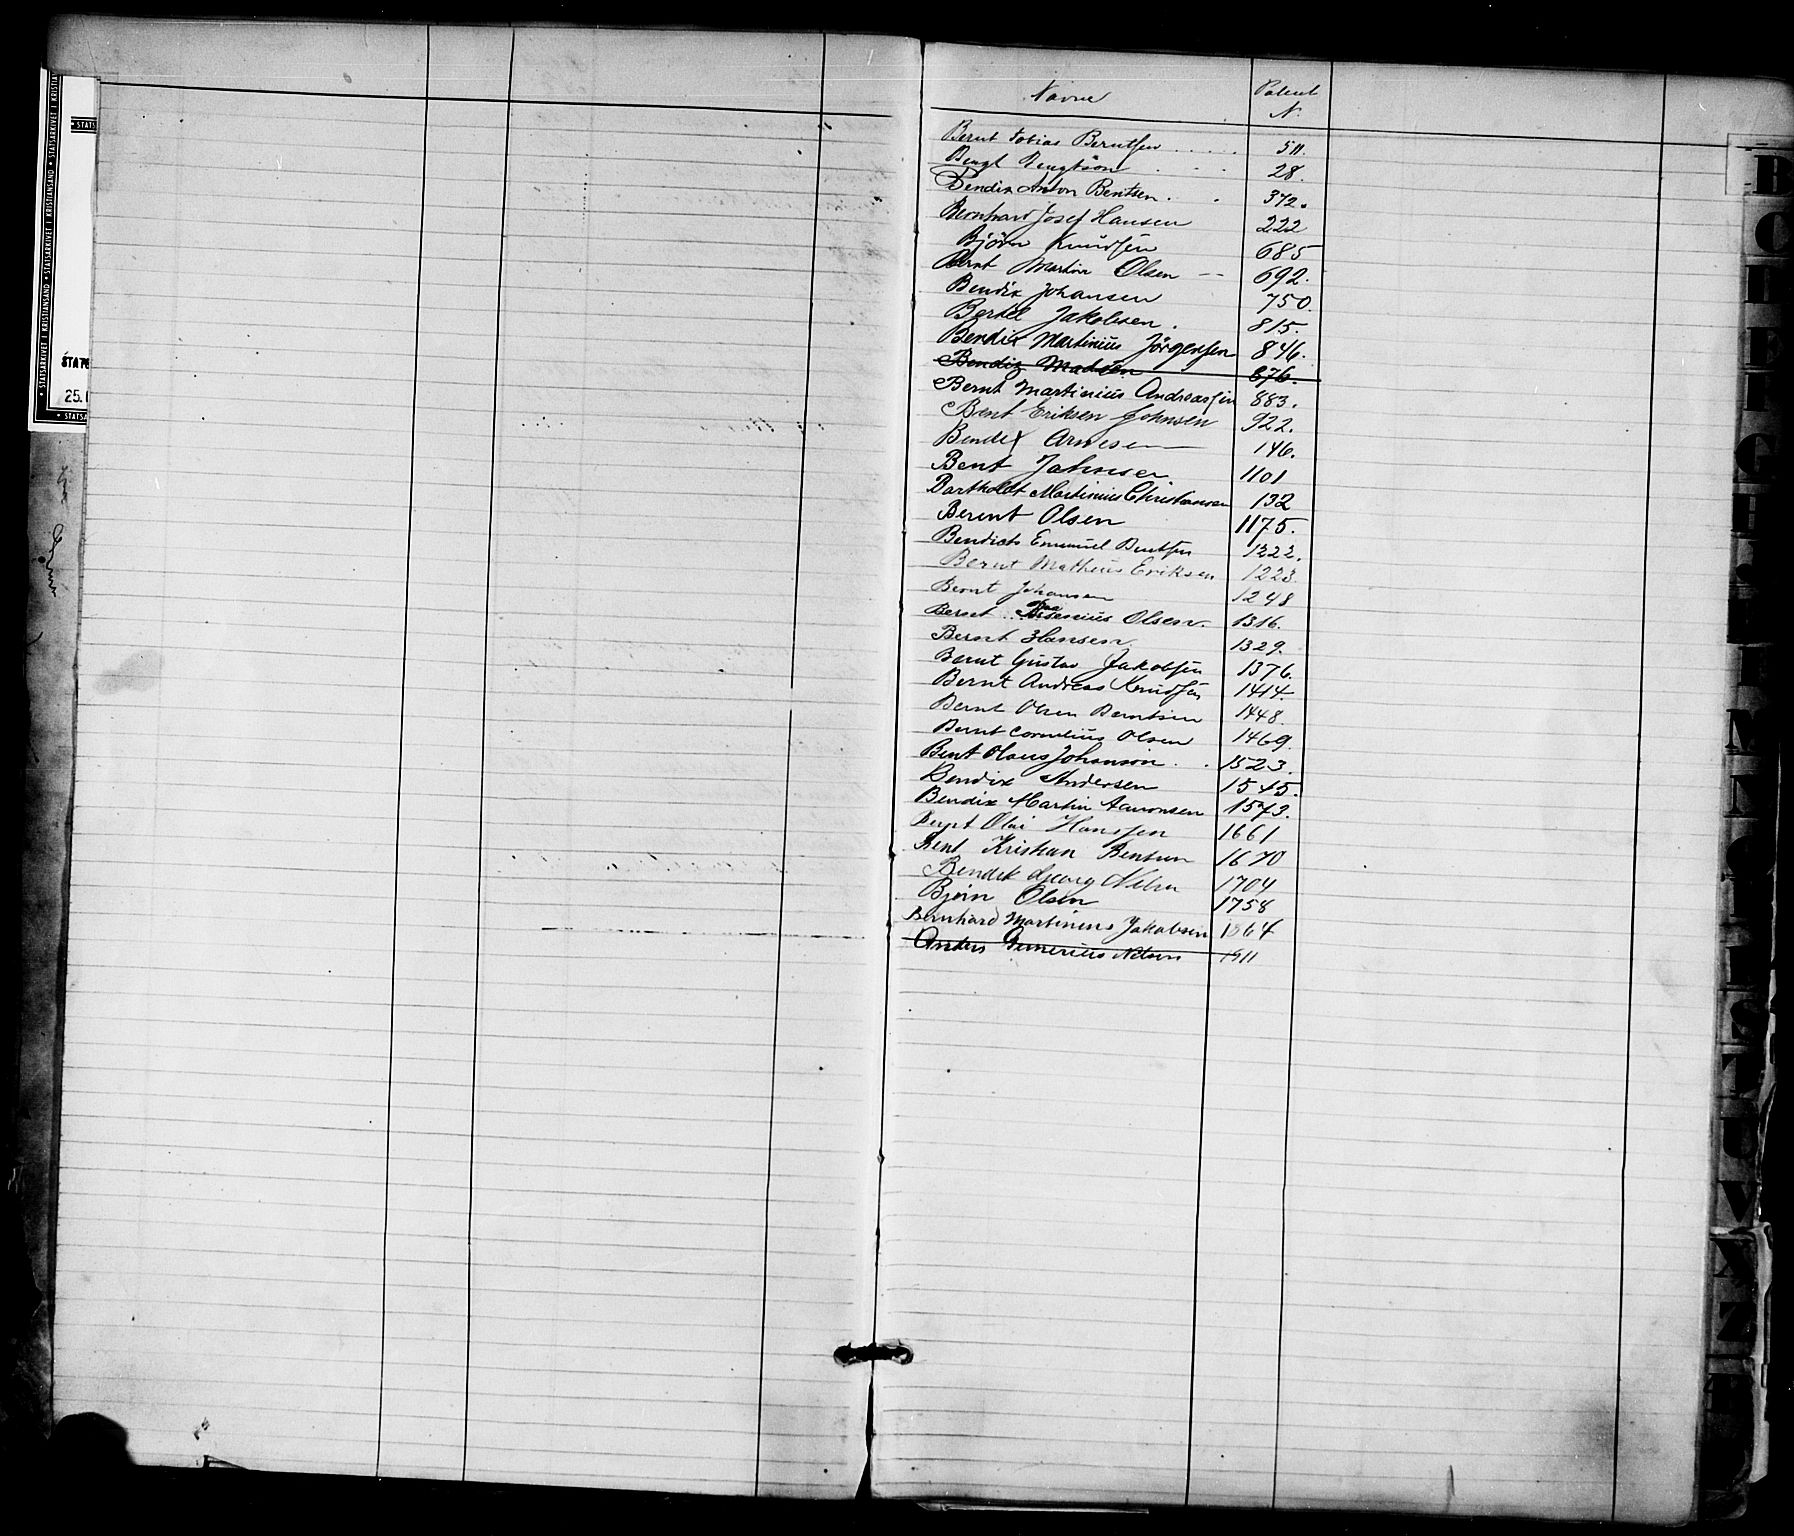 Navne Patent N.
Bernt Tobias Berntsen 511.
Bengt Bengtson 28.
Bendix Anton Bentsen 372.
Bernhard Josef Hansen 222
Björn Knudsen 685
Bernt Martin Olsen 692.
Bendix Johansen 750.
Bertel Jakobsen. 815.
Bendix Martinius Jörgensen 846.
Bendix Madsen 876.
Bernt Martinius Andreassen 883.
Bent Eriksen Johnsen 922.
Bendix Arnesen 146.
Bent Johnsen 1101
Bartholdt Martinius Christiansen 132
Berent Olsen 1175.
Bendicts Emanuel Bentsen 1222.
Bernt Matheus Eriksen 1223
Bernt Johansen 1248
Bernt Olsen. 1316.
Bernt Hansen 1329.
Bernt Gustav Jakobsen 1376.
Bernt Andreas Knudsen 1414.
Bernt Olsen Berntsen 1448.
Bernt Cornelius Olsen 1469.
Bent Olaus Johanson 1523.
Bendix Andersen 1545.
Bendix Martin Aanonsen 1573.
Bernt Olai Hanssen 1661
Bent Kristian Bentsen 1670
Bendik Georg Nilsen 1704
Bjørn Olsen 1758
Bernhard Martinius Jakobsen 1864
Anders Nilsen 1911
STATSARKIVET I KRISTIANSAND
25.
B
C
D
E
F
G
H
I
M
N
S
T
U
V
X
Z